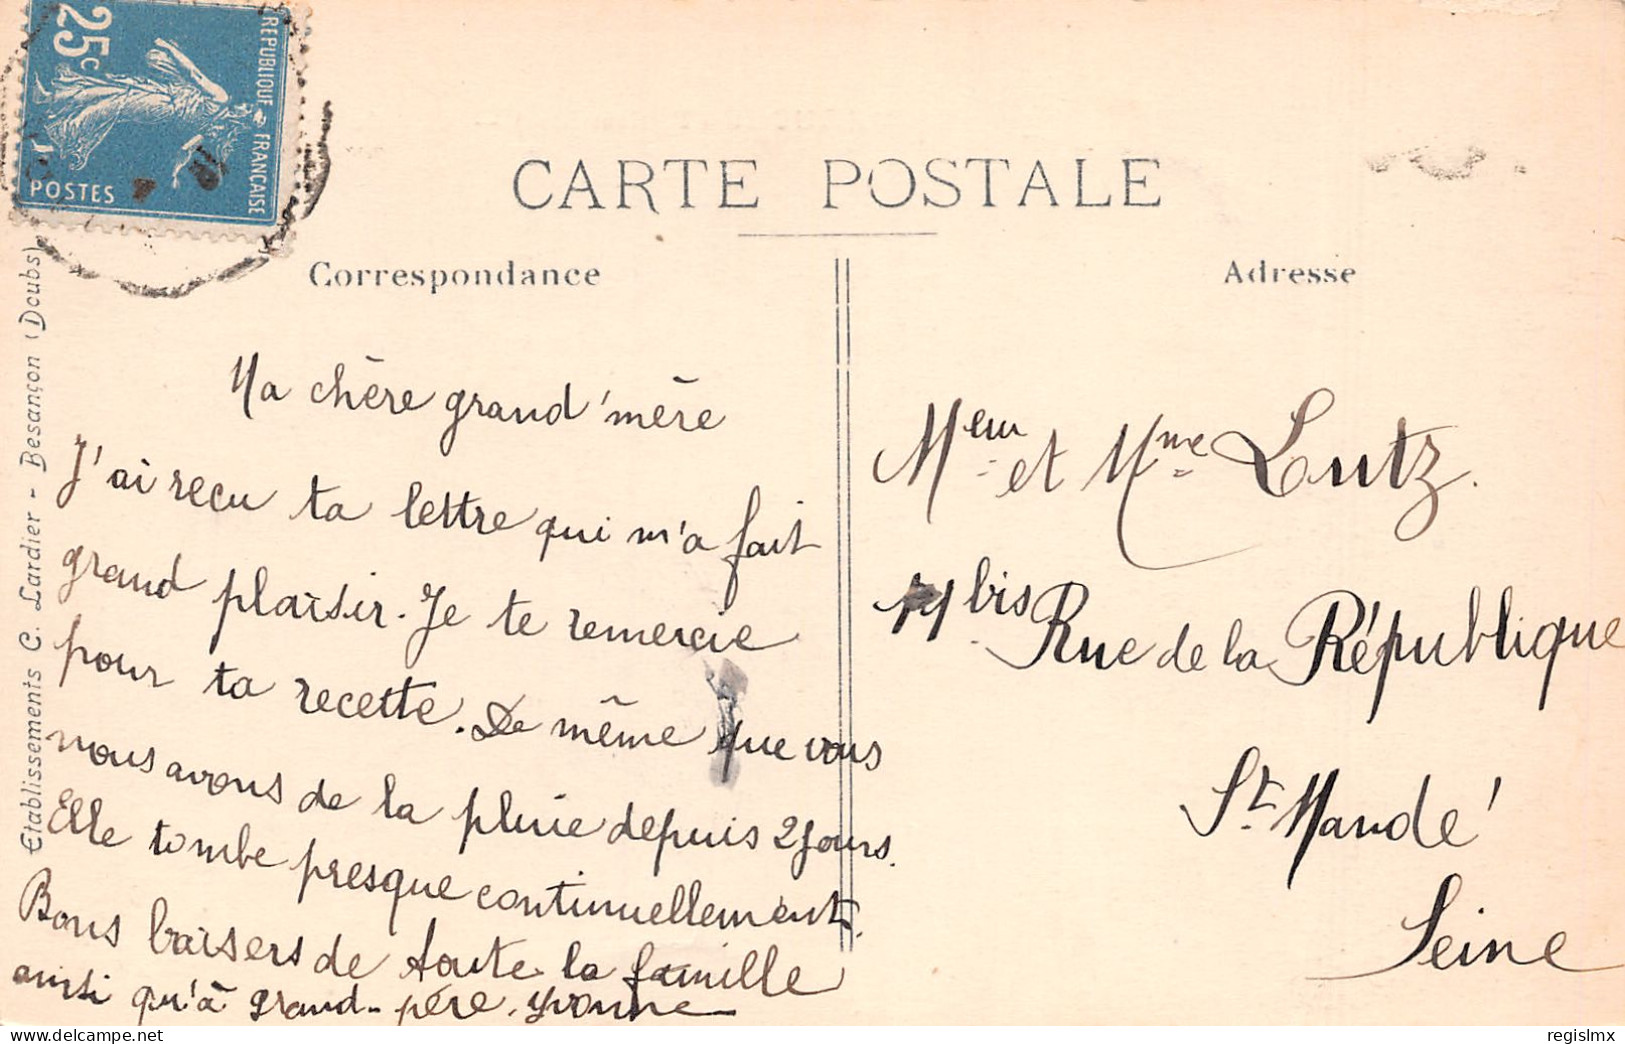 25c
REPUBLIQUE FRANÇAISE
POSTES
CARTE POSTALE
Correspondance
Adresse
Etablissements C. Lardier - Besançon (Doubs)
Ma chère grand'mère
J'ai recu ta lettre qui m'a fait
grand plaîsir. Je te remercie
pour ta recette. De même que vous
nous avons de la pluie depuis 2 jours.
Elle tombe presque continuellement.
Bons baîsers de toute la famille
ainsi qu'à grand-père. Yvonne
Meur et Mme Lutz.
bis Rue de la République
St. Mandé
Seine
regislmx